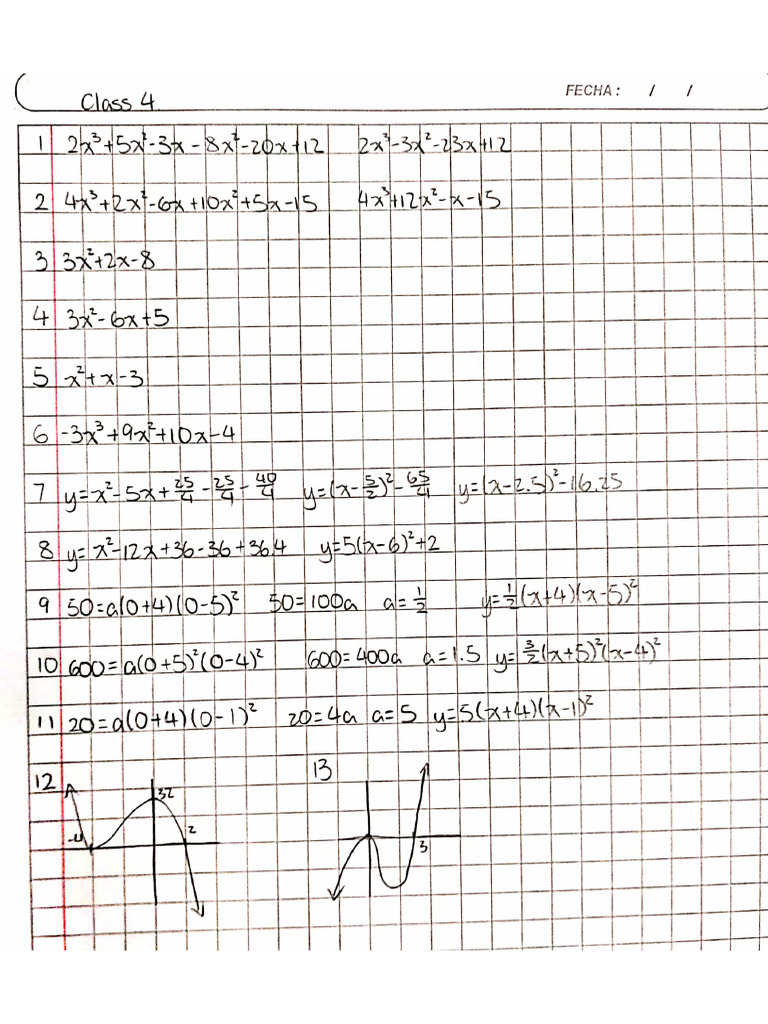 Class 4 FECHA: / /
1 2x³+5x²-3x-8x²-20x+12 2x³-3x²-23x+12
2 4x³+2x²-6x+10x²+5x-15 4x³+12x²-x-15
3 3x²+2x-8
4 3x²-6x+5
5 x²+x-3
6 -3x³+9x²+10x-4
7 y=x²-5x+25/4-25/4-40/4 y=(x-5/2)²-65/4 y=(x-2.5)²-16.25
8 y=x²-12x+36-36+36.4 y=5(x-6)²+2
9 50=a(0+4)(0-5)² 50=100a a=1/2 y=1/2(x+4)(x-5)²
10 600=a(0+5)²(0-4)² 600=400a a=1.5 y=3/2(x+5)²(x-4)²
11 20=a(0+4)(0-1)² 20=4a a=5 y=5(x+4)(x-1)²
12 13
32
-4 2 3